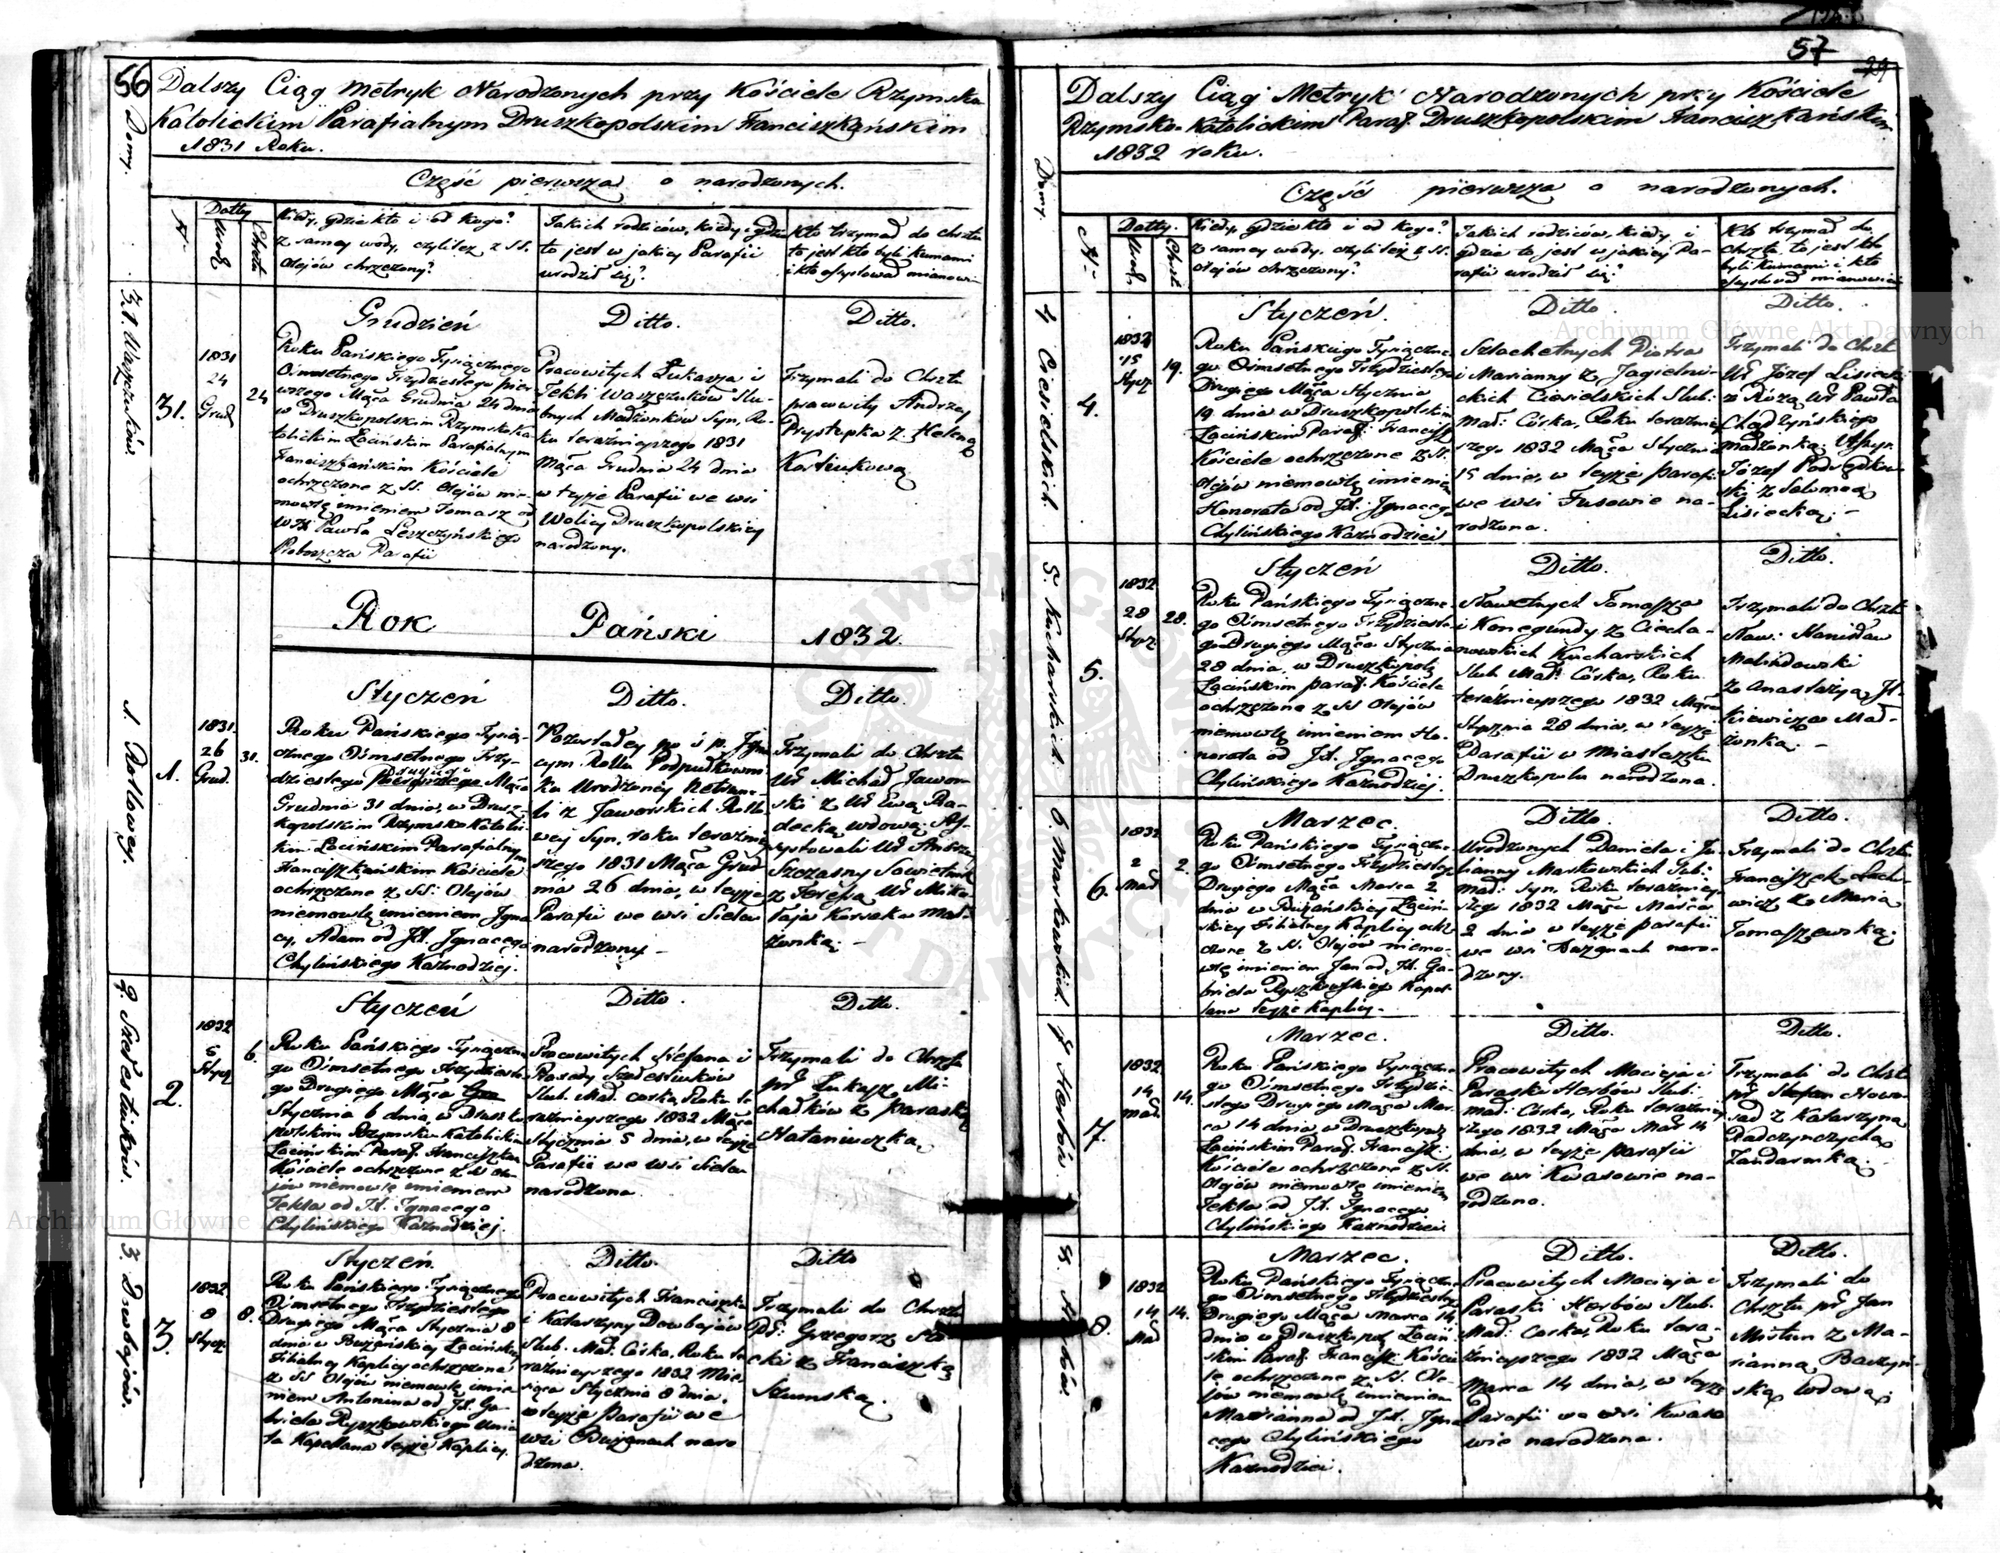 56
Dalszy Ciąg Metryk Narodzonych przy Kościele Rzymsko
Katolickim Parafialnym Druszkopolskim Franciszkańskim
1831 Roku.
Część pierwsza o narodzonych.
Domy.
N.
Datty
Urodz.
Chrztu
Kiedy, gdzie kto i od kogo?
z samey wody, czyli też z SS.
Olejów chrzczony?
Jakich rodziców, kiedy i gdzie
to jest w jakiey Parafii
urodził się?
Kto trzymał do chrztu
to jest kto byli Kumami
i kto assystował mianowi-
31. Waszczuków.
31.
1831
24
Grud.
24
Grudzień
Roku Pańskiego Tysiącznego
Ośmsetnego Trzydziestego pier-
wszego Mąca Grudnia 24 dnia
w Druszkopolskim Rzymsko Ka-
tolickim Łacińskim Parafialnym
Franciszkańskim Kościele
ochrzczone z SS. Olejów nie-
mowlę imieniem Tomasz od
W. Pawła Leszczyńskiego
Proboszcza Parafii
Ditto.
Pracowitych Łukasza i
Tekli Waszczuków Slu-
bnych Małżonków Syn, Ro-
ku teraznieyszego 1831
Mąca Grudnia 24 dnia
w teyże Parafii we wsi
Wolicy Druszkopolskiey
narodzony.
Ditto.
Trzymali do Chrztu
pracowity Andrzey
Prystupka z Heleną
Kostiukową
Rok Pański 1832.
1. Rollowey.
1.
1831.
26
Grud.
31.
Styczeń
Roku Pańskiego Tysią-
cznego Ośmsetnego Trzy-
dziestego Mąca
Grudnia 31 dnia, w Drusz-
kopolskim Rzymsko Katolic-
kim Łacińskim Parafialnym
Franciszkańskim Kościele
ochrzczone z SS: Olejów
niemowlę imieniem Igna-
cy, Adam od Jł. Ignacego
Chylińskiego Kaznodziej.
Ditto.
Pozostałey po ś. p. Igna-
cym Rollu Podpułkowni-
ku Urodzoney
z Jaworskich Roll-
wey Syn, roku teraznie-
szego 1831 Mąca Grud-
nia 26 dnia, w teyże
Parafii we wsi Sielcu
narodzony –
Ditto.
Trzymali do Chrztu
Uł Michał Jawor-
ski z Uł Ewą Ra-
decką wdową: As-
systowali Uł Ambroży
Szczasny Sowietnik
z Teressą Uł Miko-
łaja Korsaka Mał-
żonką. –
2. Szelestiuków.
2.
1832
5
Stycz
6.
Styczeń
Roku Pańskiego Tysiączne-
go Ośmsetnego Trzydzieste-
go Drugiego Mąca
Stycznia 6 dnia, w Druszko-
polskim Rzymsko Katolickim
Łacińskim Paraf. Franciszkań.
Kościele ochrzczone z SS Ole-
jów niemowlę imieniem
Tekla od Jł. Ignacego
Chylińskiego Kaznodziej.
Ditto.
Pracowitych Stefana i
Szelestiuków
Slub. Mał. corka, Roku te-
raznieyszego 1832 Mąca
Stycznia 5 dnia, w teyże
Parafii we wsi Sielcu
narodzona.
Ditto.
Trzymali do Chrztu
pr. Łukasz Mi-
chałków z Paraską
Hataniuszką
3. Dowbajów.
3.
1832.
8
Stycz.
8.
Styczeń.
Roku Pańskiego Tysiącznego
Ośmsetnego Trzydziestego
Drugiego Mąca Stycznia 8
dnia w Bużańskiey Łacińskiey
Filialney Kaplicy ochrzczone
z SS Olejów niemowlę imie-
niem Antonina od Jł. Ga-
briela Ryszkowskiego
Kapellana teyże Kaplicy.
Ditto.
Pracowitych Franciszka
i Katarzyny Dowbajów
Slub. Mał. Córka, Roku te-
raznieyszego 1832 Mie-
siąca Stycznia 8 dnia.
w teyże Parafii we
wsi Bużanach naro-
dzona.
Ditto
Trzymali do Chrztu
Pr: Grzegorz
z Franciszką
Szumską.
57
29
Dalszy Ciąg Metryk Narodzonych przy Kościele
Rzymsko-Katolickim Paraf. Druszkopolskim Franciszkańskim
1832 roku.
Część pierwsza o narodzonych.
Domy.
N.
Datty.
Urodz.
Chrzt.
Kiedy, gdzie kto i od kogo?
z samey wody, czyli też z SS.
Olejów chrzczony?
Jakich rodziców, kiedy i
gdzie to, jest w jakiey Pa-
rafii urodził się?
Kto trzymał do
chrztu, to jest kto
byli Kumami i kto
assystował mianowici
4 Ciesielskich.
4.
1832
15
Stycz
19.
Styczeń.
Roku Pańskiego Tysiączne-
go Ośmsetnego Trzydziestego
Drugiego Mąca Stycznia
19 dnia w Druszkopolskim
Łacińskim Paraf: Francisz
Kościele ochrzczone z SS.
Olejów niemowlę imieniem
Honorata od Jł. Ignacego
Chylińskiego Kaznodzieii
Ditto
Szlachetnych Piotra
i Marianny z Jagielni-
ckich Ciesielskich Slub:
mał: Córka, Roku teraznie-
szego 1832 Mąca Stycznia
15 dnia, w teyże parafii
we wsi Fusowie na-
rodzona.
Ditto.
Trzymali do Chrzt
Uł Józef Lisiecki
z Różą Uł Pawła
Chądzyńskiego
Małżonką. Assys.
Józef
z Salomeą
Lisiecką. –
5. Kucharskich.
5.
1832
28
Stycz
28.
Styczeń
Roku Pańskiego Tysiączne-
go Ośmsetnego Trzydzieste-
go Drugiego Mąca Stycznia
28 dnia, w Druszkopolu
Łacińskim paraf. Kościele
ochrzczone z SS Olejów
niemowlę imieniem Ho-
norata od Jł. Ignacego
Chylińskiego Kaznodziej.
Ditto.
Sławetnych Tomasza
i Konegundy z Ciecha-
nowskich Kucharskich
Slub Mał: Córka, Roku
teraznieyszego 1832 Mąca
Stycznia 28 dnia, w teyże
Parafii w Miasteczku
Druszkopolu narodzona.
Ditto.
Trzymali do Chrzt
Sław: Stanisław
Malindowski
z Anastazyą
Mał-
żonką. –
6. Markowskich.
6.
1832
2
Mar
2.
Marzec.
Roku Pańskiego Tysiączne-
go Ośmsetnego Trzydziestego
Drugiego Mąca Marca 2
dnia w Bużańskiey Łaciń-
skiey Filialney Kaplicy ochrz-
czone z SS. Olejów niemo-
wlę imieniem Jan od Jł. Ga-
briela Ryszkowskiego Kapel-
lana teyże Kaplicy.
Ditto.
Urodzonych Daniela i Ju-
lianny Markowskich Slub:
mał: Syn, Roku teraznie-
szego 1832 Mąca Marca
2 dnia w teyże parafii
we wsi Bużanach naro-
dzony.
Ditto.
Trzymali do Chrztu
Franciszek Lach-
wicz z Maria
Tomaszewską.
7 Herbów.
7.
1832.
14
Mar.
14.
Marzec.
Roku Pańskiego Tysiączne-
go Ośmsetnego Trzydzie-
stego Drugiego Mąca Mar-
ca 14 dnia, w Druszkopol
Łacińskim Paraf. Francisz
Kościele ochrzczone z SS.
Olejów niemowlę imieniem
Tekla od Jł. Ignacego
Chylińskiego Kaznodzieii
Ditto.
Pracowitych Macieja i
Paraski Herbów Slub:
mał: Córka, Roku teraznie-
szego 1832 Mąca Mar 14
dnia, w teyże parafii
we wsi Kwasowie na-
rodzona.
Ditto.
Trzymali do Chrzt
pr. Stefan Nowo-
sad z Katarzyną
Radczynczychą
Żandarmką.
8. Herbów.
8.
1832
14
Ma
14.
Marzec.
Roku Pańskiego Tysiączne-
go Ośmsetnego Trzydziestego
Drugiego Mąca Marca 14
dnia w Druszkopol. Laciń-
skim Paraf. Francisz. Koście-
le ochrzczone z SS. Ole-
jów niemowlę imieniem
Marrianna od Jł. Igna-
cego Chylińskiego
Kaznodzieii.
Ditto.
Pracowitych Macieja i
Paraski Herbów Slub.
Mał: Corka, Roku tera-
znieyszego 1832 Mąca
Marca 14 dnia, w teyże
Parafii we wsi Kwaso-
wie narodzona.
Ditto.
Trzymali do
Chrztu pr Jan
z Ma-
rianną Baczyń-
ską wdową.
Archiwum Główne Akt Dawnych
Archiwum Główne Akt Dawnych